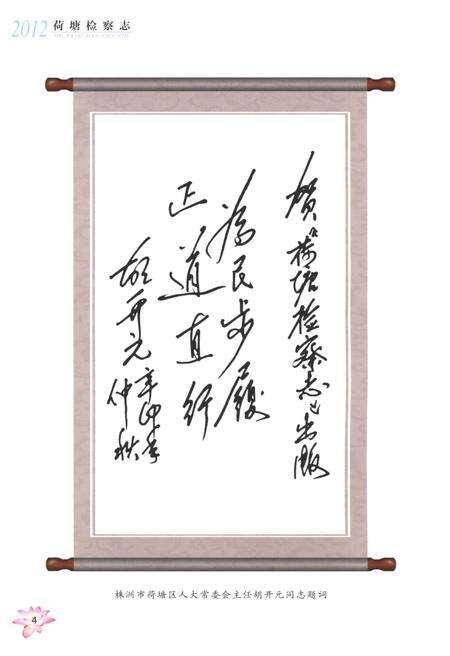 2012 荷塘检察志
HE TANG JIAN CHA ZHI
贺《荷塘检察志》出版
为民步履
正道直行
胡开元
辛卯年
仲秋
株洲市荷塘区人大常委会主任胡开元同志题词
4